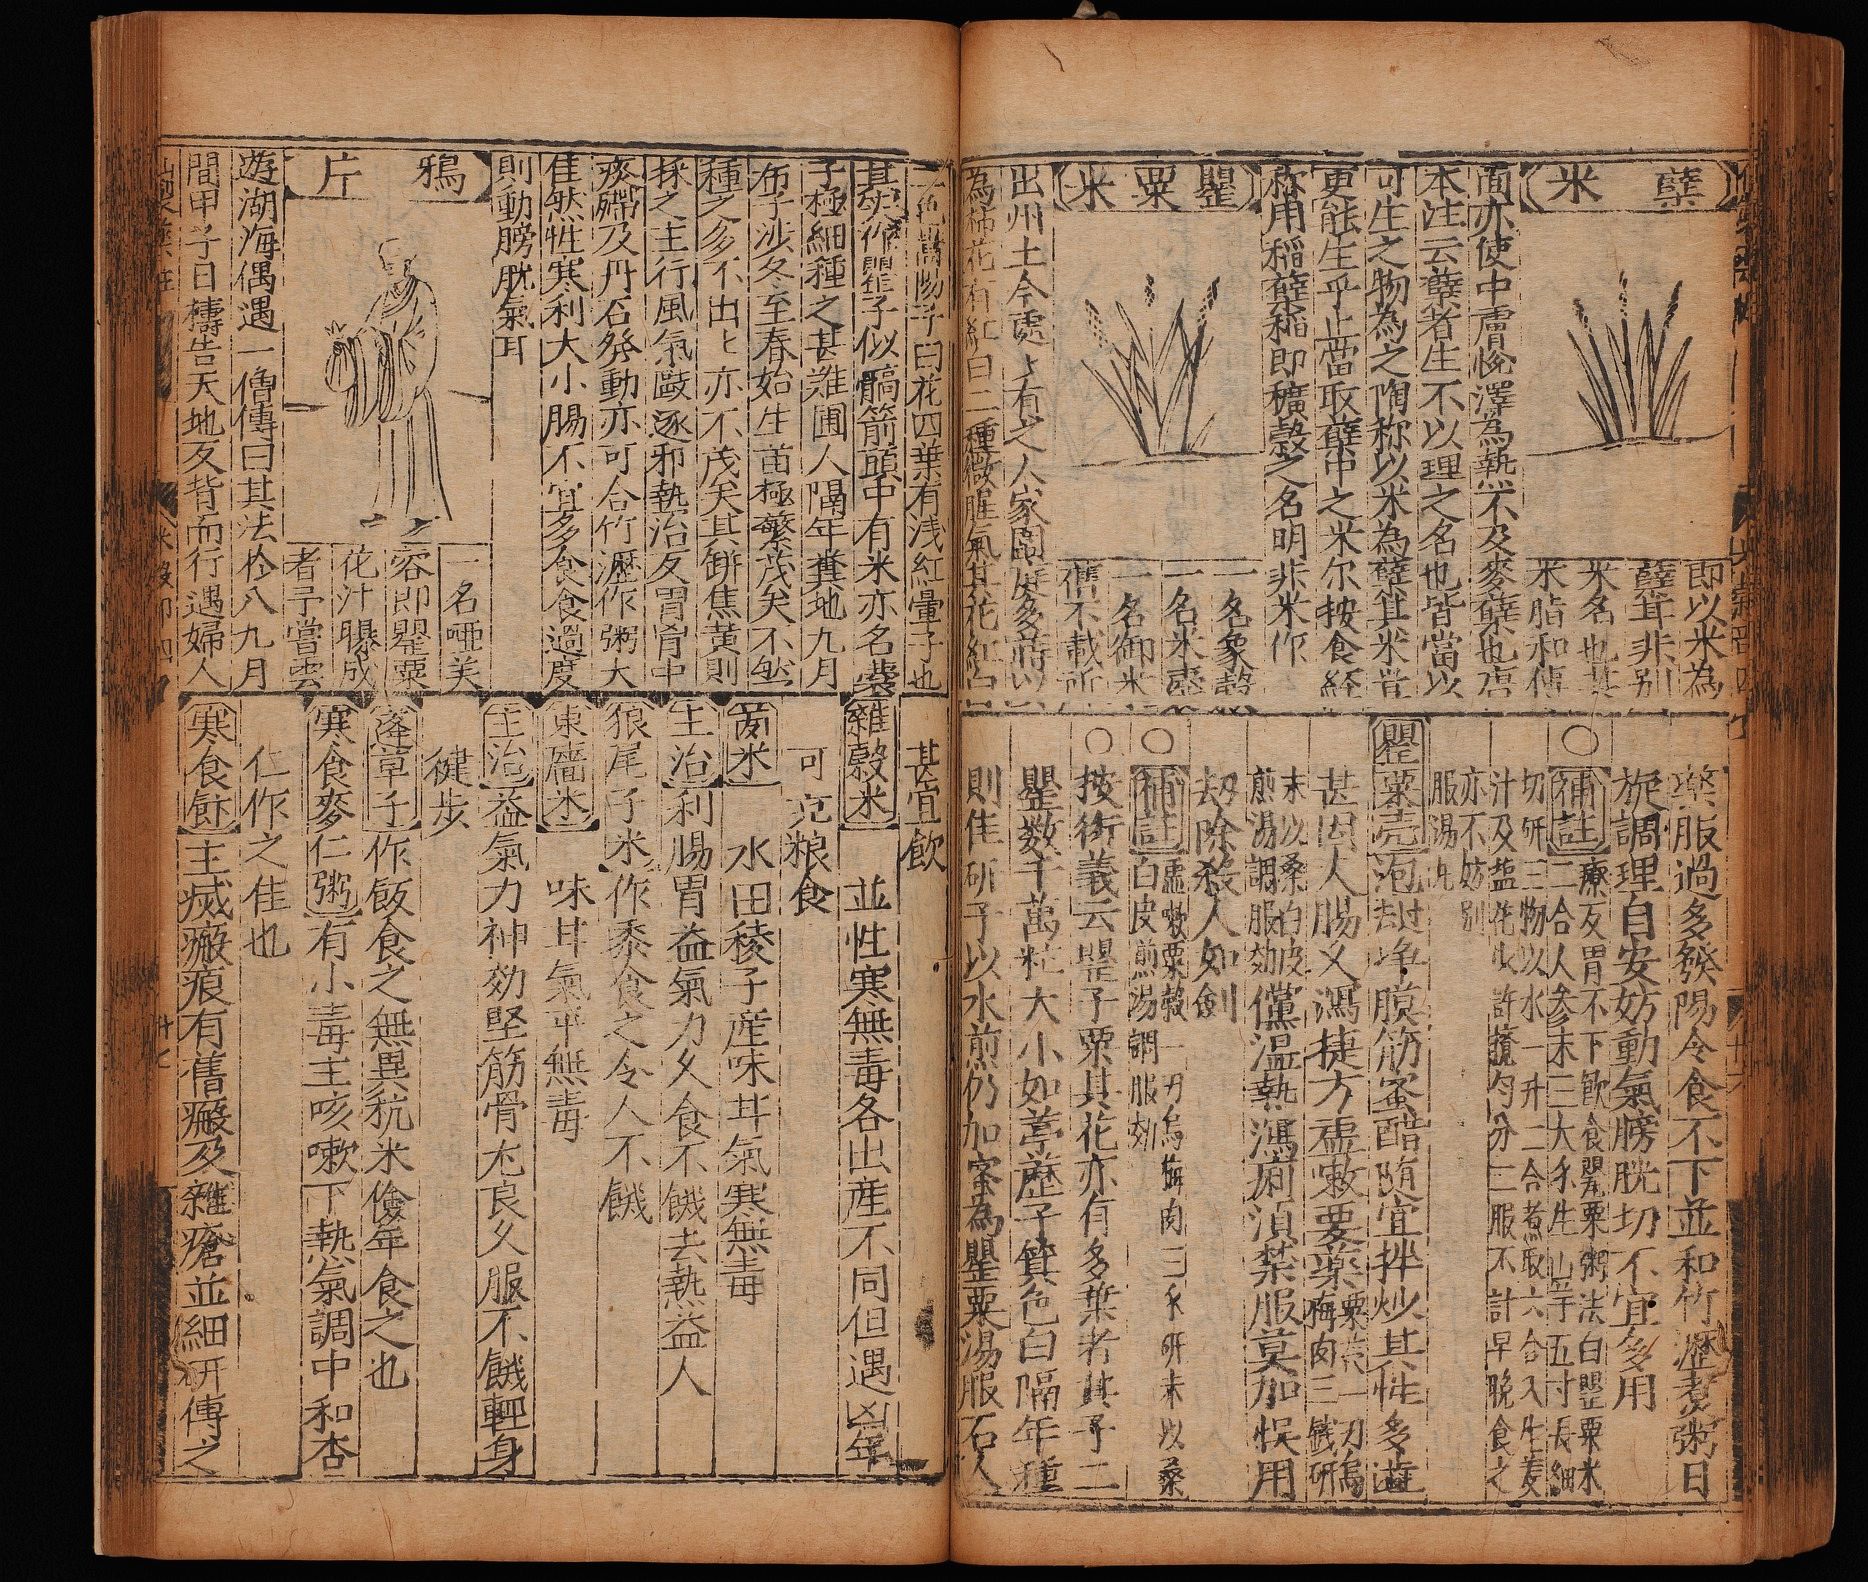 米 櫱
即以米為
櫱耳非別
米名也其
米脂和傅
面亦使中膚悅澤為熱不及麥櫱也唐
本注云櫱者生不以理之名也皆當以
可生之物為之陶称以米為櫱其米豈
更能生乎止當取櫱中之米尔按食經
称用稲櫱稲即穬榖之名明非米作
米 粟 罌
一名象榖
一名米囊
一名御米
舊不載所
出州土今處々有之人家園庭多蒔以
為餙花有紅白二種微腥氣其花紅白
藥服過多發陽令食不下並和竹瀝煮粥日
旎調理自安妨動氣膀胱切不宜多用
○補註 療反胃不下飲食罌粟粥法白罌粟米
二合人参末三大錢生山芋五寸長細
切研三物以水一升二合煮取六合入生薑
汁及盐花少許攪匀分二服不計早晚食之
亦不妨別
服湯丸
罌粟壳 泡去净膜筋蜜醋随宜拌炒其性多澁
甚固人腸久瀉捷方虛嗽要藥 粟壳一刃烏
梅肉三錢研
末以桑白皮
煎湯調服効 儻温熱瀉痢湏禁服莫加悞用
刼除殺人如劍
○補註 虚嗽粟榖一刃烏梅肉三錢研末以桑
白皮煎湯調服効
○按衍義云罌子粟其花亦有多葉者其子二
罌数千萬粒大小如葶藶子箕色白隔年種
則佳研子以水煎仍加蜜為罌粟湯服石人
其殻作罌子似髇箭頭中有米亦名囊
子極細種之甚難圃人隔年糞地九月
布子涉冬至春始生苗極繁茂矣不然
種之多不出々亦不茂矣其缾焦黃則
採之主行風氣敺逐邪熱治反胃胷中
痰滯及丹石發動亦可合竹瀝作粥大
佳然性寒利大小腸不宜多食食過度
則動膀胱氣耳
片 鴉
一名啞芙
蓉即罌粟
花汁曝成
者予當雲
遊湖海偶遇一僧傳曰其法於八九月
間甲子日禱告天地反背而行遇婦人
甚宜飲
雜榖米 並性寒無毒各出産不同但遇凶年
可克粮食
䒷米 水田稜子産味甘氣寒無毒
主治 利腸胃益氣力久食不饑去熱益人
狼尾子米 作黍食之令人不饑
東廧米 味甘氣平無毒
主治 益氣力神効堅筋骨尤良久服不饑輕身
健步
蓬草子 作飯食之無異秔米儉年食之也
寒食麥仁粥 有小毒主咳嗽下熱氣調中和杏
仁作之佳也
寒食餅 主滅瘢痕有舊瘢及雜瘡並細研傅之